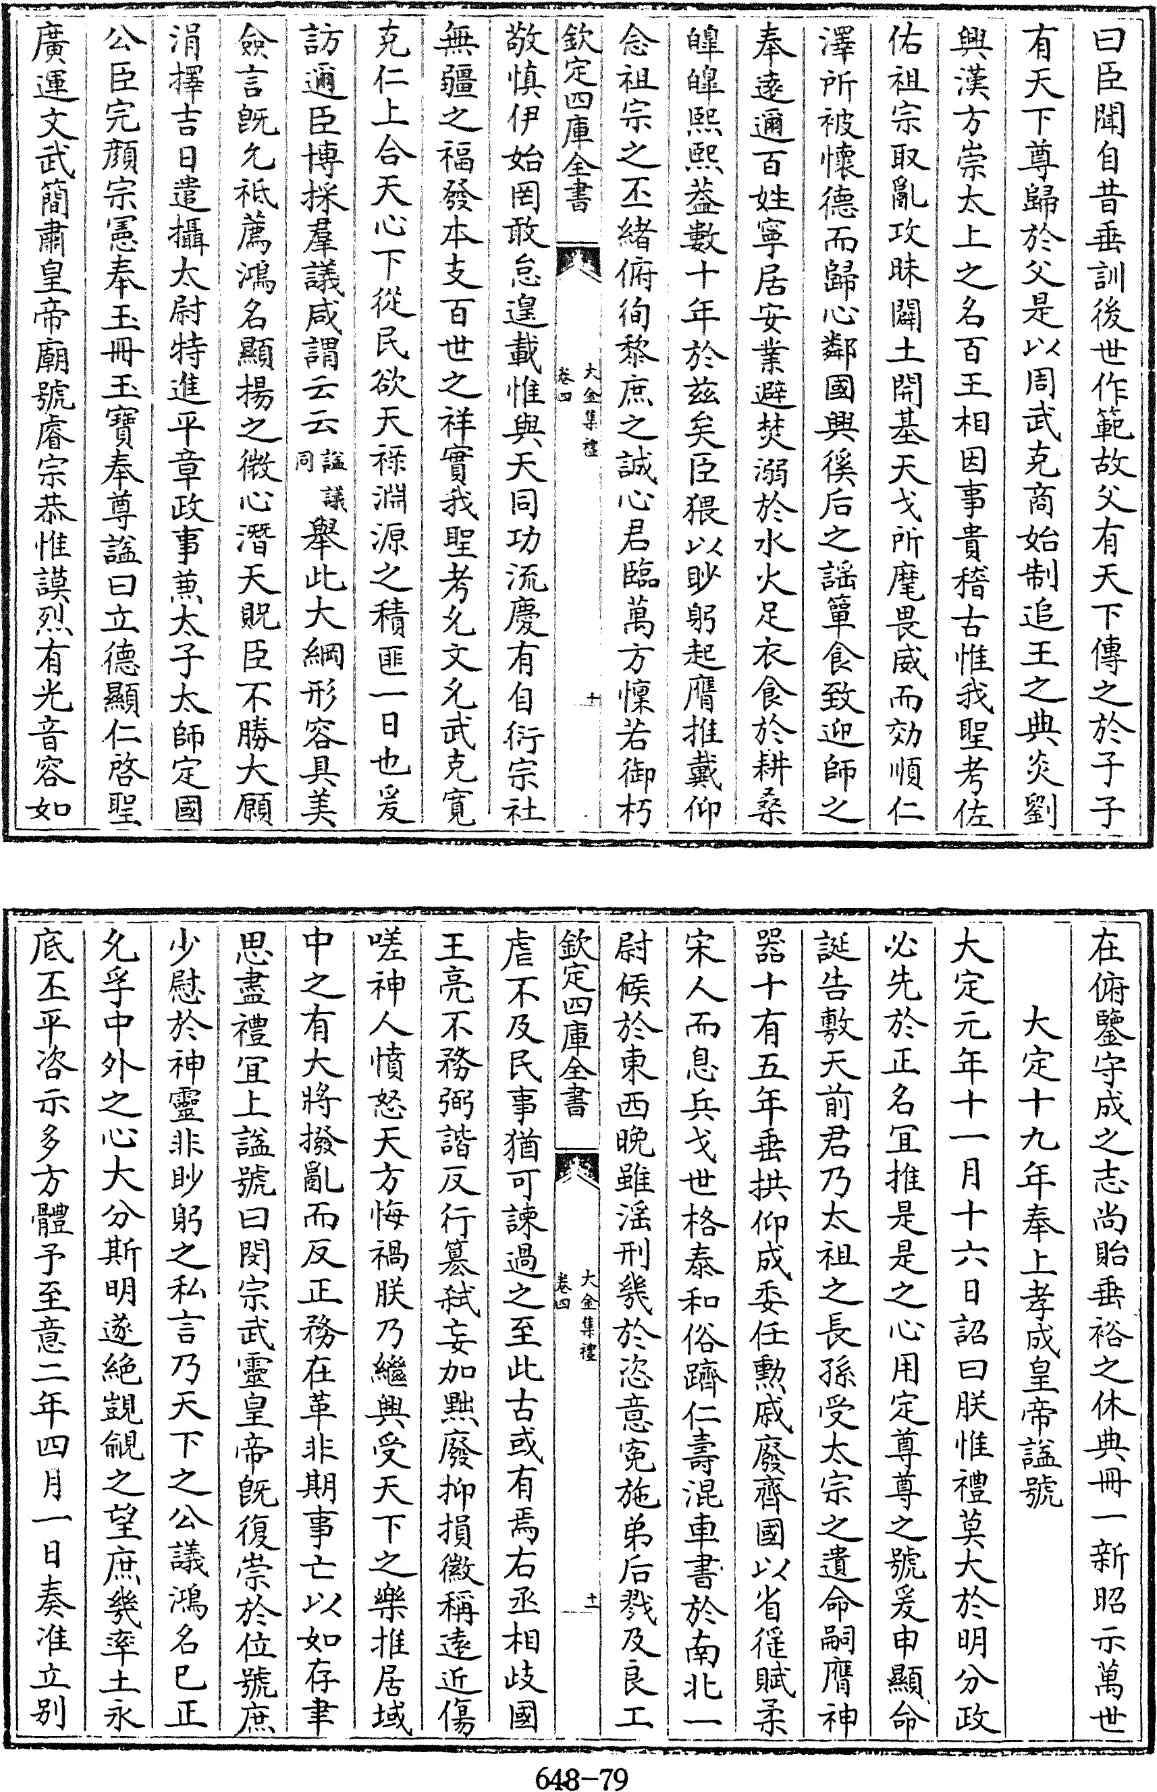 曰臣聞自昔垂訓後世作範故父有天下傳之於子子
有天下尊歸於父是以周武克商始制追王之典炎劉
興漢方崇太上之名百王相因事貴稽古惟我聖考佐
佑祖宗取亂攻昧闢土開基天戈所麾畏威而効順仁
澤所被懷德而歸心鄰國興徯后之謡簞食致迎師之
奉逺邇百姓寧居安業避焚溺於水火足衣食於耕桑
皥皥熙熙葢數十年於兹矣臣猥以眇躬起膺推戴仰
念祖宗之丕緒俯徇黎庶之誠心君臨萬方懍若御朽
欽定四庫全書
大金集禮
卷四
十
敬慎伊始罔敢怠遑載惟與天同功流慶有自衍宗社
無疆之福發本支百世之祥實我聖考允文允武克寛
克仁上合天心下從民欲天祿淵源之積匪一日也爰
訪邇臣博採羣議咸謂云云謚議同舉此大綱形容具美
僉言既允祗薦鴻名顯揚之微心潛天貺臣不勝大願
涓擇吉日遣攝太尉特進平章政事兼太子太師定國
公臣完顔宗憲奉玉冊玉寶奉尊謚曰立德顯仁啓聖
廣運文武簡肅皇帝廟號睿宗恭惟謨烈有光音容如
在俯鑒守成之志尚貽垂裕之休典冊一新昭示萬世
大定十九年奉上孝成皇帝謚號
大定元年十一月十六日詔曰朕惟禮莫大於明分政
必先於正名宜推是是之心用定尊尊之號爰申顯命
誕告敷天前君乃太祖之長孫受太宗之遺命嗣膺神
器十有五年垂拱仰成委任勲戚廢齊國以省徭賦柔
宋人而息兵戈世格泰和俗躋仁壽混車書於南北一
尉候於東西晩雖淫刑幾於恣意寃施弟后戮及良工
欽定四庫全書
大金集禮
卷四
十一
虐不及民事猶可諫過之至此古或有焉右丞相歧國
王亮不務弼諧反行簒弑妄加黜廢抑損徽稱逺近傷
嗟神人憤怒天方悔禍朕乃繼興受天下之樂推居域
中之有大將撥亂而反正務在革非期事亡以如存聿
思盡禮宜上謚號曰閔宗武靈皇帝既復崇於位號庶
少慰於神靈非眇躬之私言乃天下之公議鴻名已正
允孚中外之心大分斯明遂絶覬覦之望庶幾率土永
底丕平咨示多方體予至意二年四月一日奏准立别
648-79